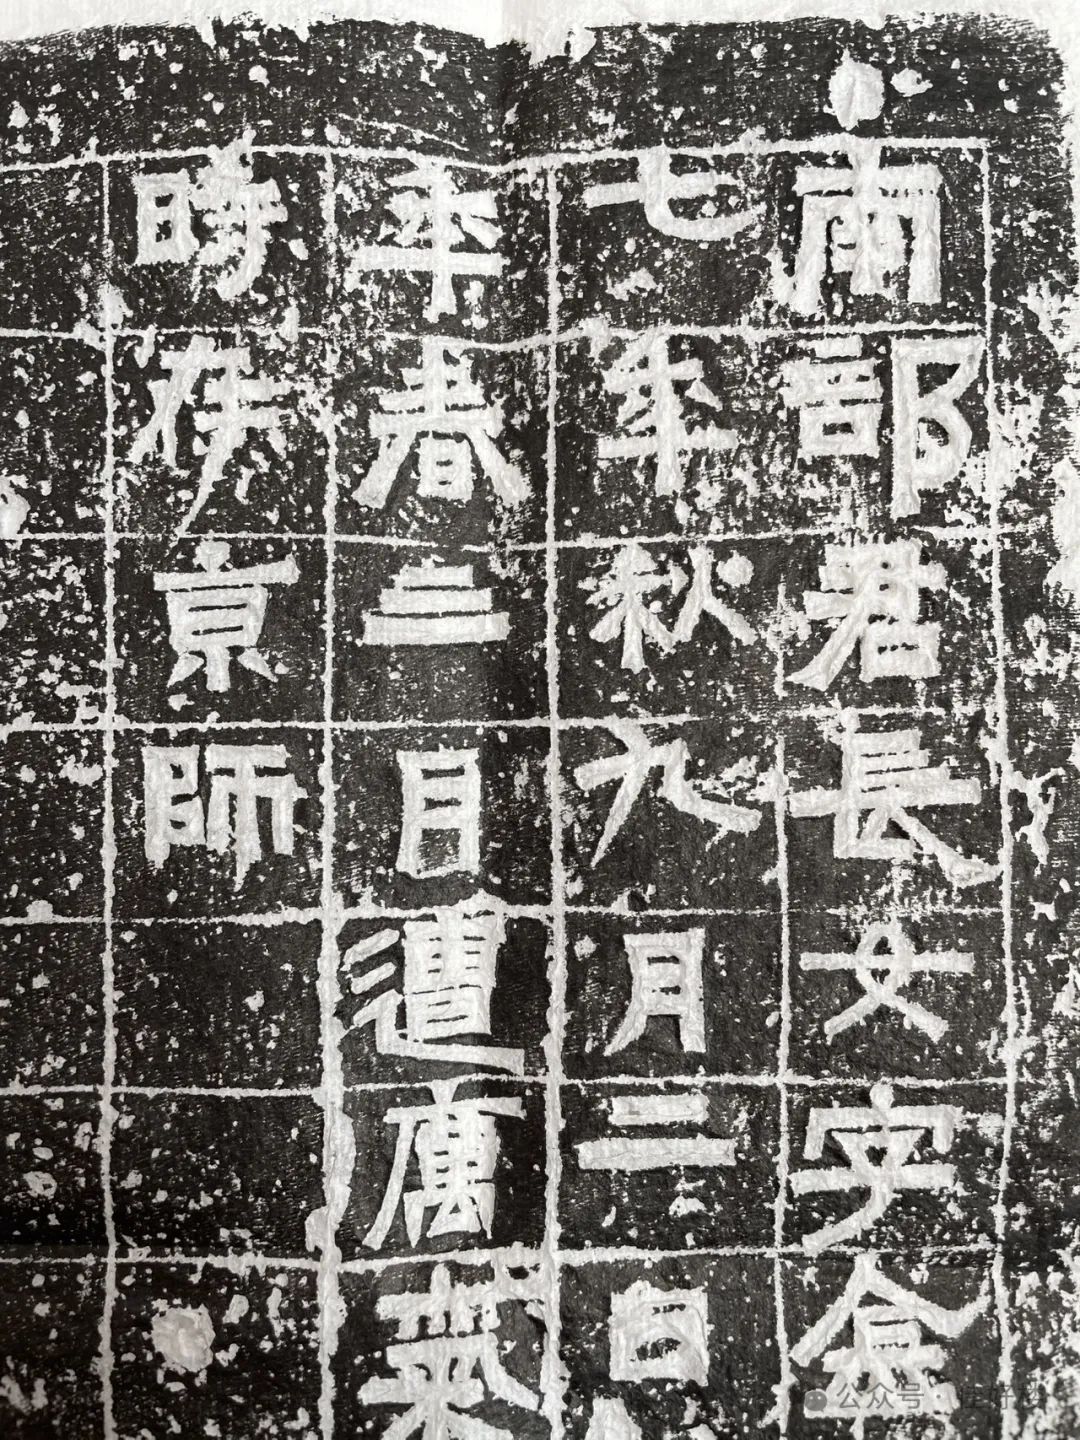 南部君長女字
七年秋九月二日
年春三月遭
時京師
公众号